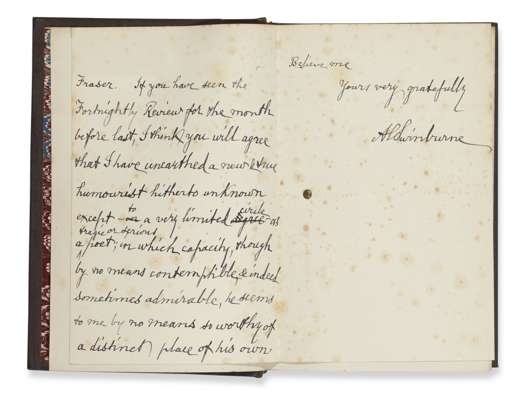 Fraser. If you have seen the
Fortnightly Review for the month
before last, I think you will agree
that I have unearthed a new & true
humourist hitherto unknown
to circle
except in a very limited degree as
tragic or serious
a poet; in which capacity, though
by no means contemptible, & indeed
sometimes admirable, he seems
to me by no means so worthy of
a distinct place of his own
Believe me
Yours very gratefully
A C Swinburne